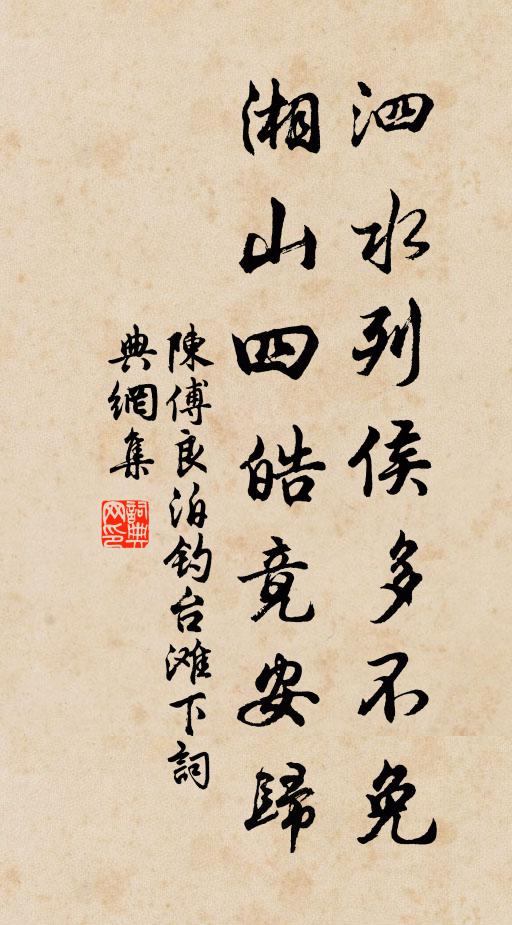 泗水列侯多不免
湘山四皓竟安歸
陳傅良泊钓台滩下詞
典網集
詞典网印